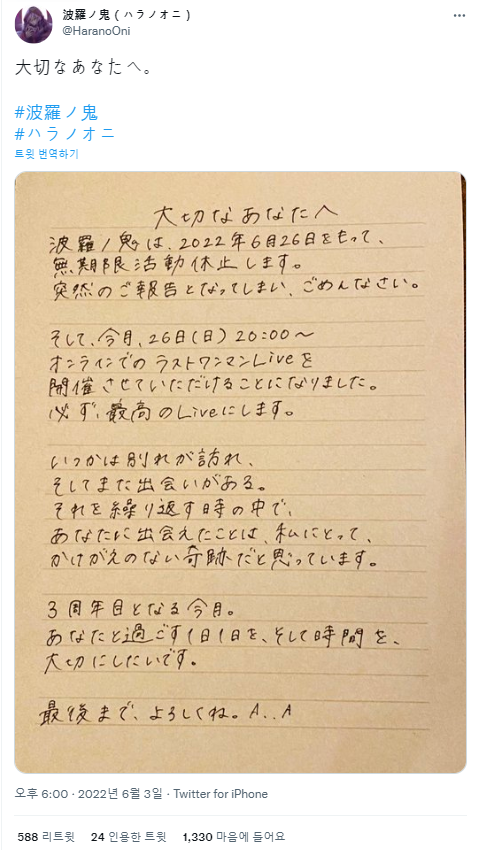 波羅ノ鬼 ( ハラノオニ )
@HaranoOni
大切なあなたへ。
#波羅ノ鬼
#ハラノオニ
트윗 번역하기
大切なあなたへ
波羅ノ鬼は、2022年6月26日をもって、
無期限活動休止します。
突然のご報告となってしまい、ごめんなさい。
そして、今月、26日(日) 20:00〜
オンラインでのラストワンマンLiveを
開催させていただけることになりました。
必ず、最高のLiveにします。
いつかは別れが訪れ、
そしてまた出会いがある。
それを繰り返す時の中で、
あなたに出会えたことは、私にとって、
かけがえのない奇跡だと思っています。
3周年目となる今月。
あなたと過ごす1日1日を、そして時間を、
大切にしたいです。
最後まで、よろしくね。A..A
오후 6:00 · 2022년 6월 3일 · Twitter for iPhone
588 리트윗 24 인용한 트윗 1,330 마음에 들어요